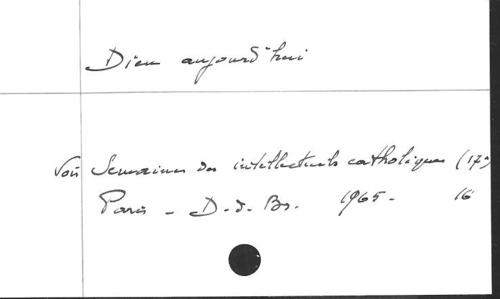 Dieu aujourd'hui
Voir Semaines des intellectuels catholiques (17e)
Paris - D.d.Br. 1965 - 16